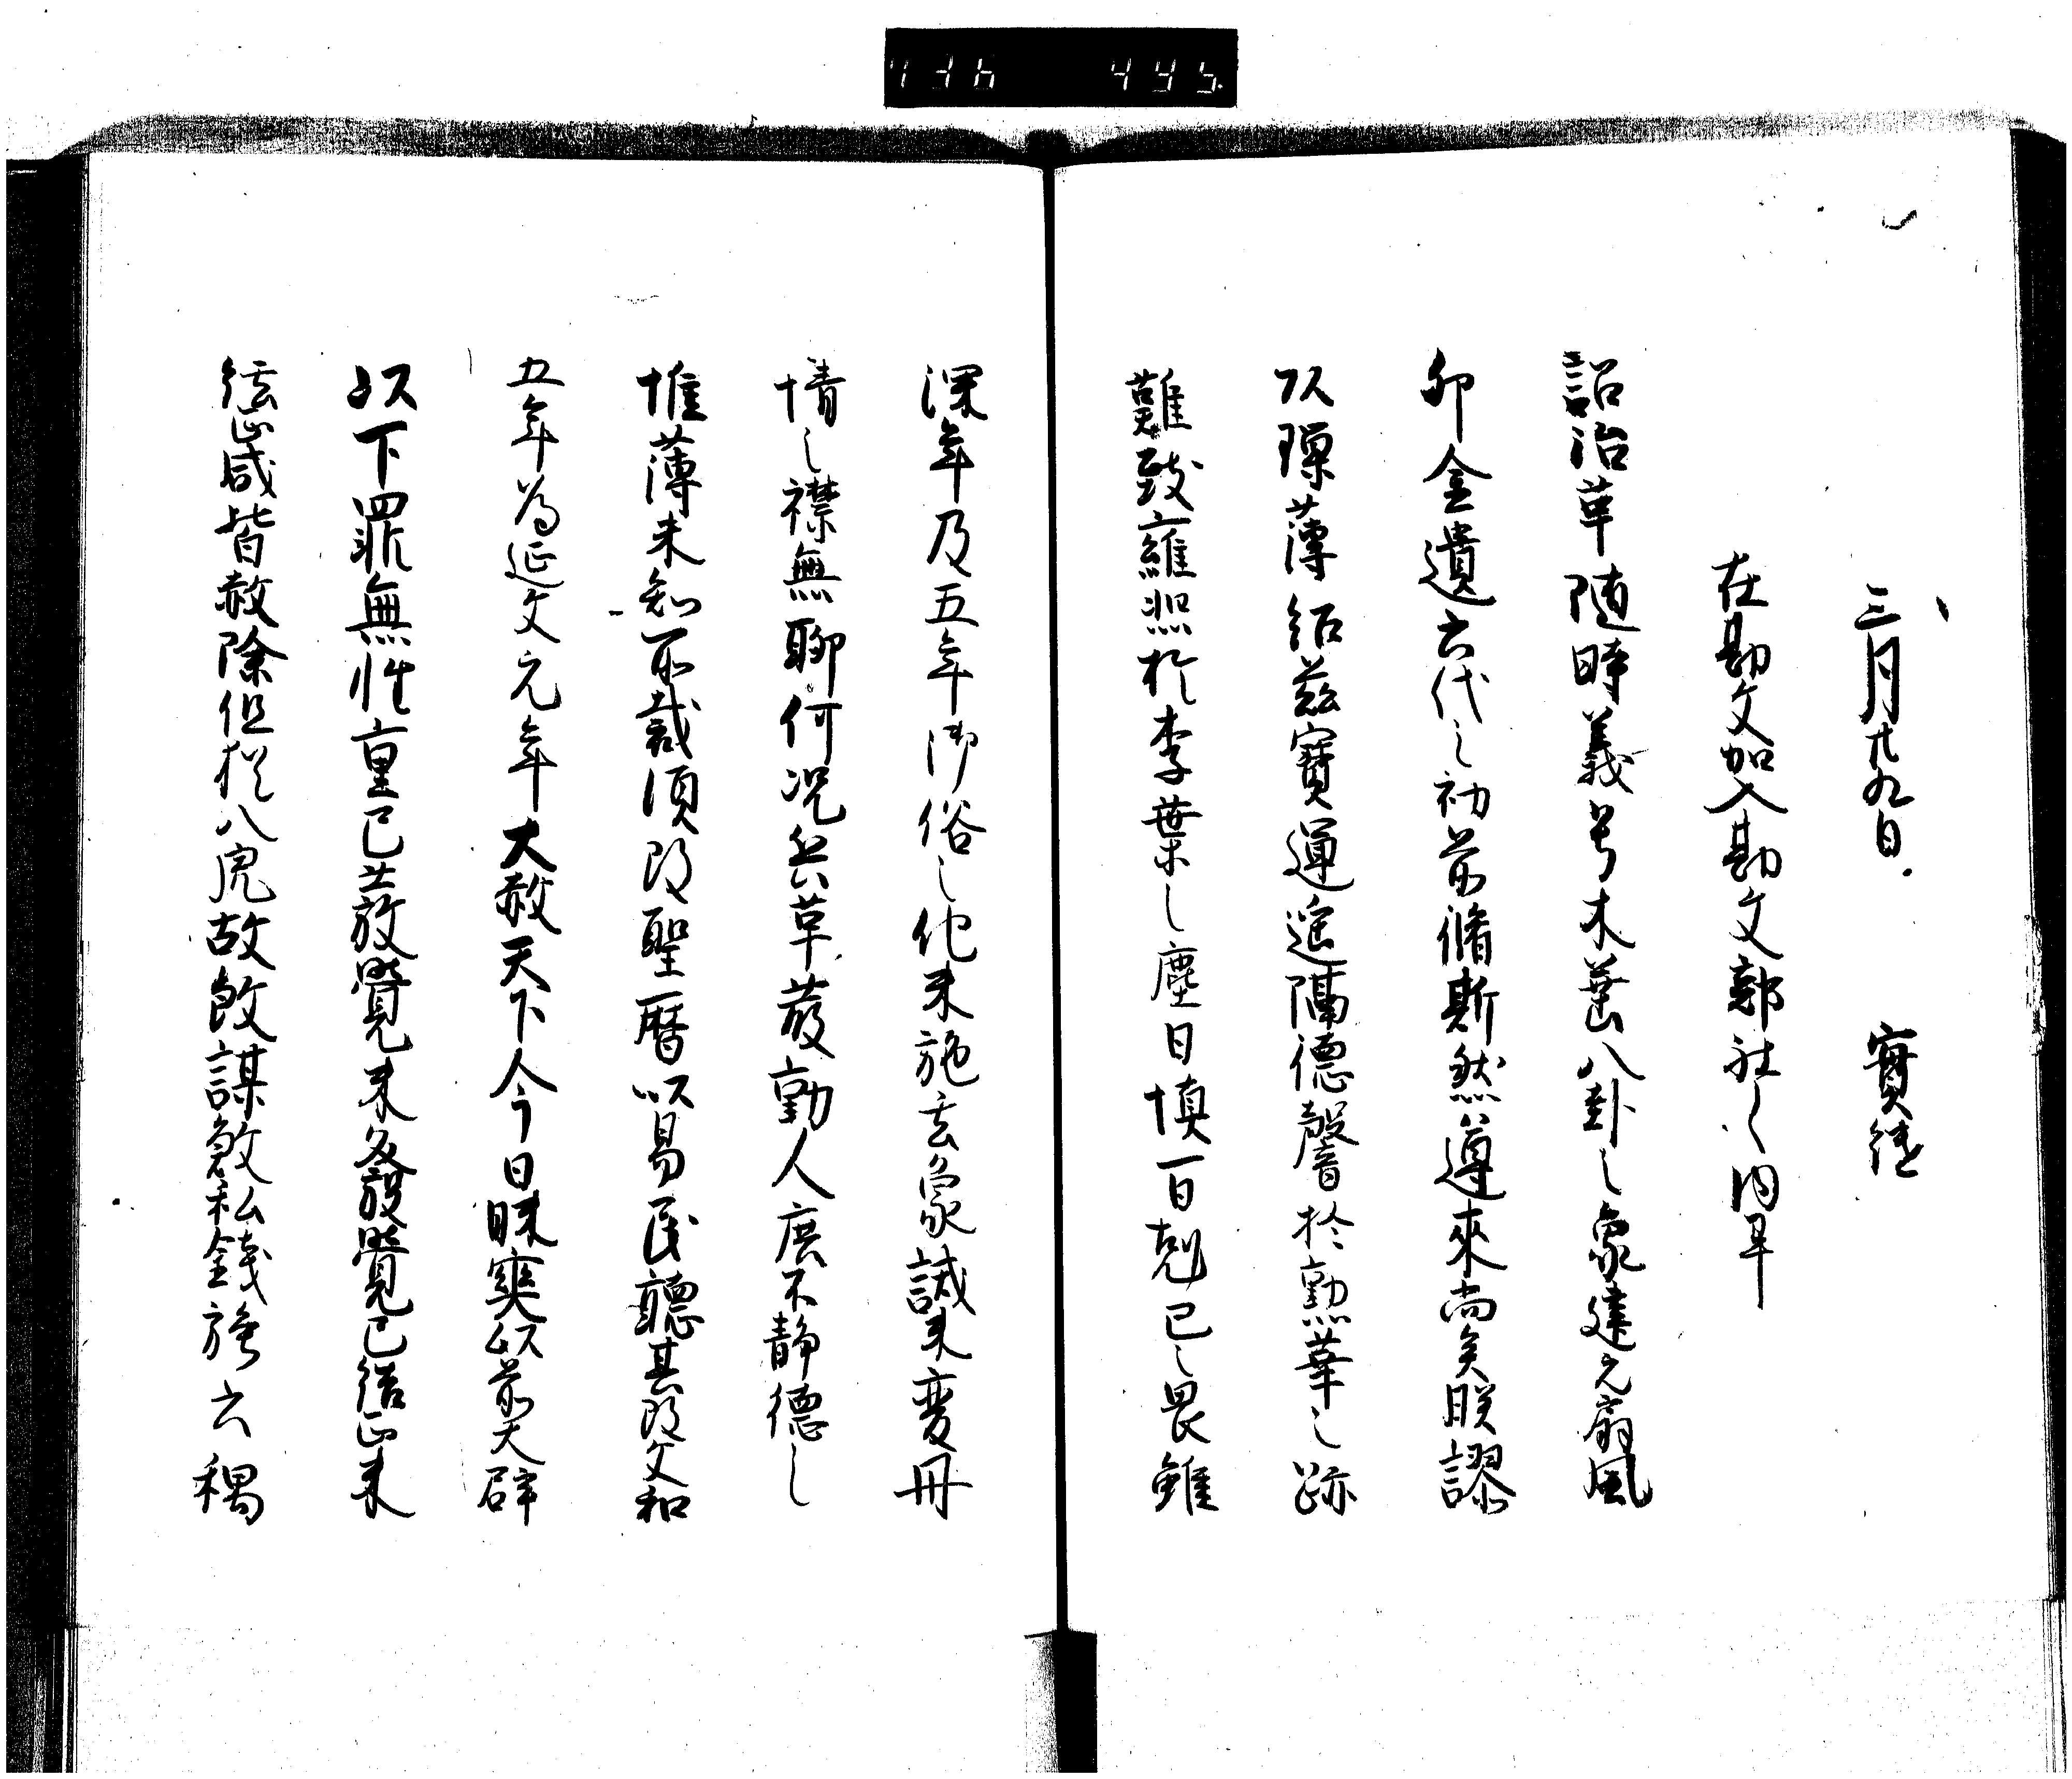 三月廿九日 實継
在勘文加入勘文部社之内早
詔治革随時義号木葉八卦之象建元扇風
卯金遺六代之初前脩斯然遵來尚矣朕謬
以瓊薄紹茲寶運遥隔德馨於勲華之跡
難致雍熙於李葉之塵日慎一日兢己之畏雖
深年及五年澆俗之化未施玄象誡未変丹
情之襟無聊何況兵革薐動人庶不静德之
惟薄未知所裁須改聖暦以易民聴其改文和
五年為延文元年大赦天下今日昧爽以前大辟
以下罪無性重已發覺未發覺已結正未
結正咸皆赦除但犯八虐故殺謀殺私鋳銭強竊